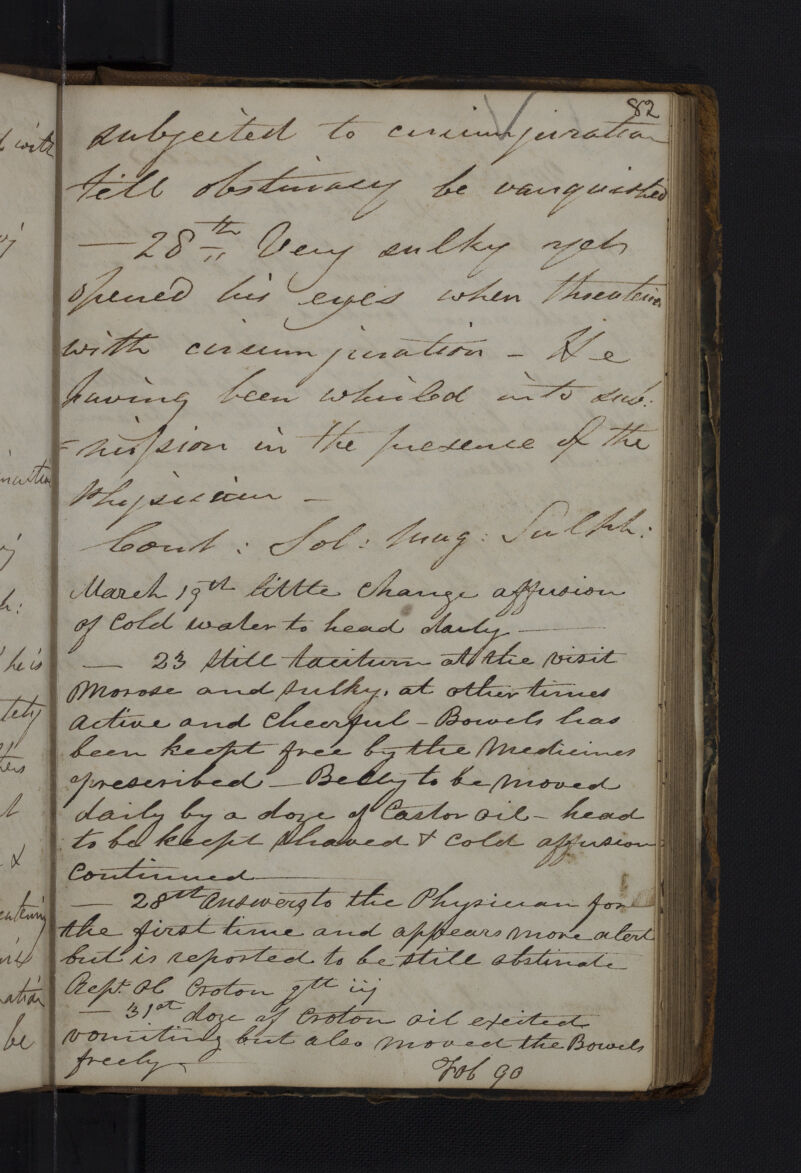 82
subjected to circumjuration
till obstinacy be vanquished
— 28th Very sulky yet
opened his eyes when threatein
with circumjuration – He
having been whirled into sub:
=mission in the presence of the
Physician –
Cont: Sol: Mag: Sulph:
March 19th little change affusion
of cold water to head daily —
— 23 still taciturn at the visit
morose and sulky. at other times
active and cheerful – Bowels has
been keept free by the Medicines
prescribed – Belly to be moved
daily by a doze of Castor oil – head
to be keept shaved & cold affusion
continued —
— 28th answers to the Physician for
the first time and appears more alert
but is reported to be still obstinate
Rept. Ol Croton gtt iij
— 31st doze of Croton oil excited
vomiting but also moved the Bowels
freely –
Fol 90